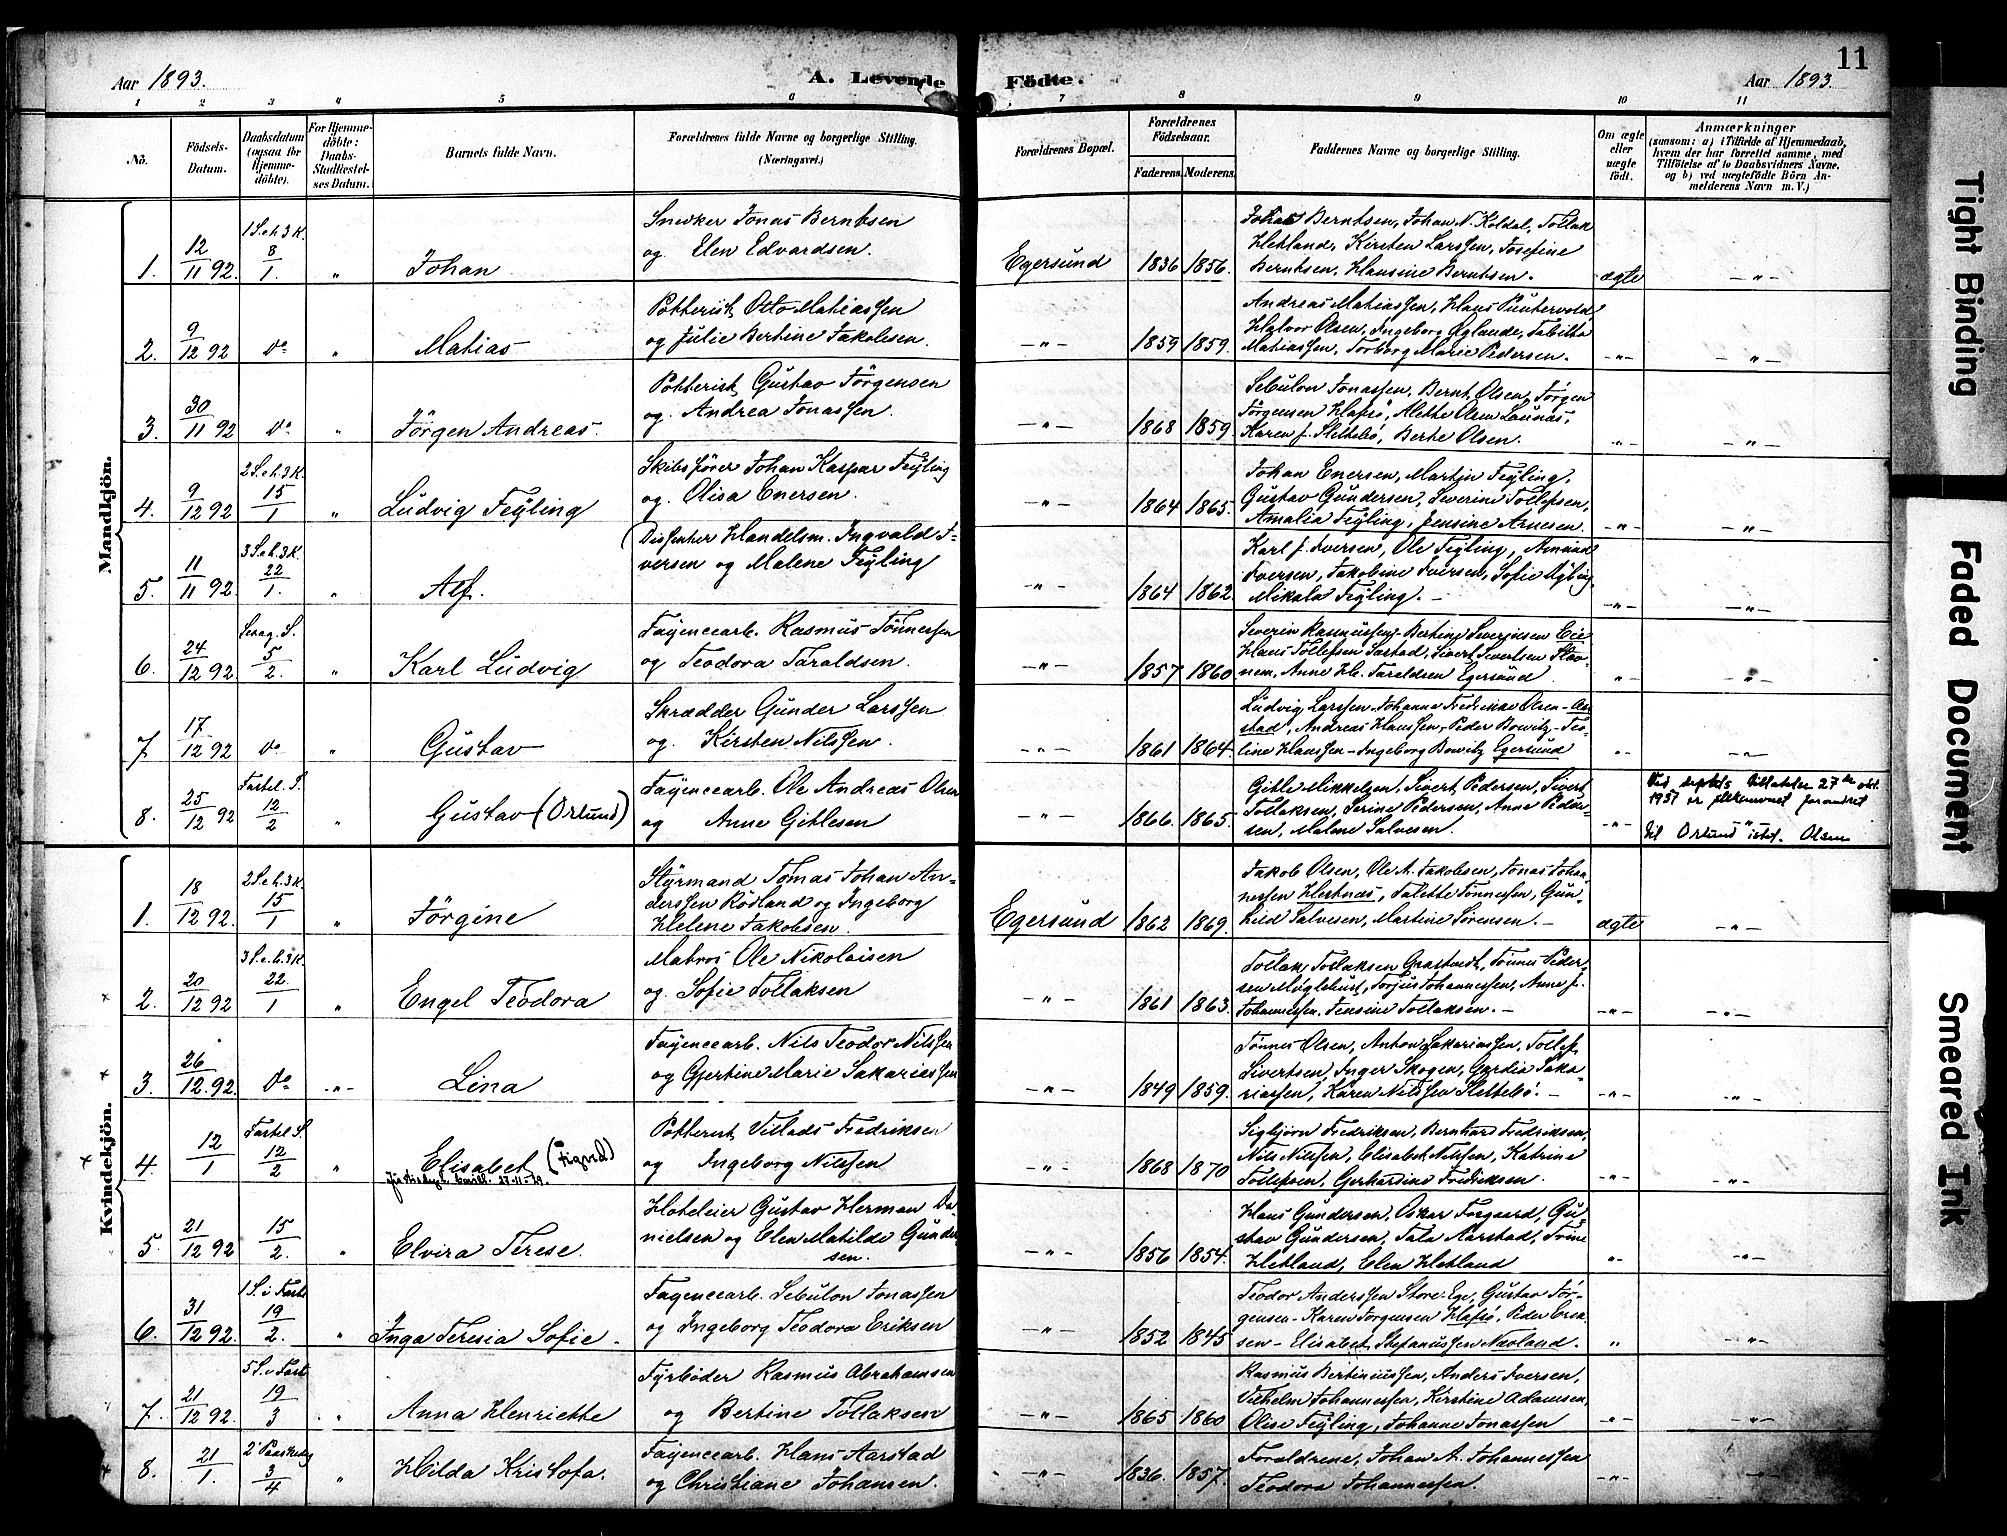 11
Aar 1893. A. Levende Födte. Aar 1893.
1 2 3 4 5 6 7 8 9 10 11
No. Födsels-Datum. Daabsdatum (ogsaa for Hjemme-döbte). For Hjemme-döbte: Daabs-Stadfæstel-ses Datum. Barnets fulde Navn. Forældrenes fulde Navne og borgerlige Stilling. (Næringsvei.) Forældrenes Bopæl. Forældrenes Födselsaar. Faderens. Moderens. Faddernes Navne og borgerlige Stilling. Om ægte eller uægte födt. Anmærkninger
(saasom: a) i Tilfælde af Hjemmedaab,
hvem der har forrettet samme, med
Tilföielse af to Daabsvidners Navne,
og b) ved uægtefödte Börn An-
melderens Navn m. V.)
Mandkjön.
1. 12/11 92. 1 S. e h. 3 K. 8/1. " Johan
Snedker Jonas Berntsen
og Elen Edvardsen.
Egersund 1836 1856.
Jonas Berntsen, Johan N. Koldal, Tollak
Hetland, Kirsten Larssen, Josefine
Berntsen, Hansine Berntsen. ægte - " -
2. 9/12 92 do " Matias
Potterisk. Otto Matiassen
og Julie Bertine Jakobsen.
- " - 1859 1859.
Andreas Matiassen, Hans Puntervold
Halvor Olsen, Ingeborg Øglænde, Tabitha
Matiassen, Torborg Marie Pedersen. - " - - " -
3. 30/11 92 do " Jörgen Andreas.
Potterisk. Gustav Jörgensen
og Andrea Jonassen.
- " - 1868 1859.
Sebulon Jonassen, Bernt Olsen, Jörgen
Jörgensen Hafsö, Alethe Olsen Launes,
Karen J. Slettebö, Berte Olsen. " - " -
4. 9/12 92 2 S. e h. 3 K. 15/1 " Ludvig Feyling
Skibsförer Johan Kaspar Feyling
og Olisa Enersen.
- " - 1864 1865.
Johan Enersen, Martin Feyling,
Gustav Gundersen, Severine Tollefsen,
Amalia Feyling, Jensine Arnesen. - " - - " -
5. 11/11 92. 3 S. e h. 3 K. 22/1. " Alf.
(Dissenter Handelsm. Ingvald I-
versen og Malene Feyling
- " - 1864 1862.
Karl J. Iversen, Ole Feyling, Amund
Iversen, Jakobine Iversen, Sofie
Mikala Feyling. - - " - - " -
6. 24/12 92. Sexag. S. 5/2. " Karl Ludvig
Fayencearb. Rasmus Tönnessen
og Teodora Taraldsen.
- " - 1857 1860
Severin Rasmussen, Bertine Severinsen Eie
Hans Tollefsen Sastad, Sivert Sivertsen Stav-
nem, Anne H. Taraldsen Egersund " - " -
7 17/12 92 do " Gustav
Skrædder Gunder Larssen
og Kirsten Nilssen.
- " - 1861 1864.
Ludvig Larssen - Johanne Fredrikke Olsen - Aar-
stad, Andreas Hanssen - Peder Bowitz - Teo-
line Hanssen - Ingeborg Bowitz Egersund " - " -
8. 25/12 92 Fastel. S. 12/2 " Gustav (Orlund)
Fayencearb. Ole Andreas Olsen
og Anne Gitlesen
- " - 1866. 1865.
Gitle Mikkelsen, Sivert Pedersen, Sivert
Tollaksen, Serine Pedersen, Anna Peder-
sen, Malene Salvesen. - " -
Ved depts tillatelse 27de okt.
1937 er slektsnavnet forandret
til Orlund istf. Olsen
Kvindekjön.
1. 18/12 92. 2 S. e h. 3 K. 15/1 " Jörgine
Styrmand Tomas Johan An-
derssen Rödland og Ingeborg
Helene Jakobsen.
Egersund 1862 1869.
Jakob Olsen, Ole A. Jakobsen, Jonas Johan-
nessen Hestnes, Talette Tönnessen, Gun-
hild Salvesen, Martine Sörensen. - ægte - " -
2. 20/12 92 3 S. e h. 3 K. 22/1 " Engel Teodora
Matros Ole Nikolaisen
og Sofie Tollaksen
- " - 1861 1863.
Tollak Tollaksen, Tönnes Peder-
sen Myglebust, Torjus Johannessen, Anne J.
Johannessen, Jensine Tollaksen. - - " - - " -
3. 26/12. 92. do - " - Lina
Fayencearb. Nils Teodor Nilssen
og Gjertine Marie Sakariassen
- " - 1849 1859.
Tönnes Olsen, Anton Sakariassen, Tollef
Sivertsen, Inger Skogen, Gurdia Saka-
riassen, Karen Nilssen Slettebö. - - " - - " -
4. 12/1 Fastel. S. 12/2 " Elisabet (Figved)
27-11-79.
Potterist Villads Fredriksen
og Ingeborg Nilssen
- " - 1868 1870
Sigbjörn Fredriksen, Bernhard Fredriksen,
Nils Nilssen, Elisabet Nilssen, Katrine
Tollefsen, Gerhardine Fredriksen. - " - - " -
5. 21/12 92 15/2. " Elvira Terese.
Hoteleier Gustav Herman Da-
nielsen og Elen Matilde Gunder-
sen.
- " - 1856 1854.
Hans Gundersen, Oskar Forgaard, Gu-
stav Gundersen, Tala Aarstad, Trine
Hetland, Elen Hetland " - " -
6. 31/12 92. 1 S. i Faste 19/2. " Inga Teresia Sofie.
Fayencearb. Sebulon Jonassen
og Ingeborg Teodora Eriksen
- " - 1852 1845
Teodor Anderssen Store-Ege, Gustav Jör-
gensen - Karen Jörgensen Hafsö, Peder
sen - Elisabet Stefanussen Nesland. " - " -
7. 21/12 92. 5 S. i Faste 19/3 " Anna Henriette
Fyrböder Rasmus Abrahamsen
og Bertine Tollaksen
- " - 1865 1860
Rasmus Bertiniussen, Anders Iversen,
Vilhelm Johannessen, Kirstine Adamsen,
Olise Feyling, Johanne Jonassen - " - - " -
8. 21/1. 2' Paaskedag 3/4 " Hilda Kristofa.
Fayencearb. Hans Aarstad
og Christiane Johansen.
- " - 1836. 1857.
Forældrene, Johan A. Johannessen
Teodora Johannessen. - " - - " -
Tight Binding
Faded Document
Smeared Ink